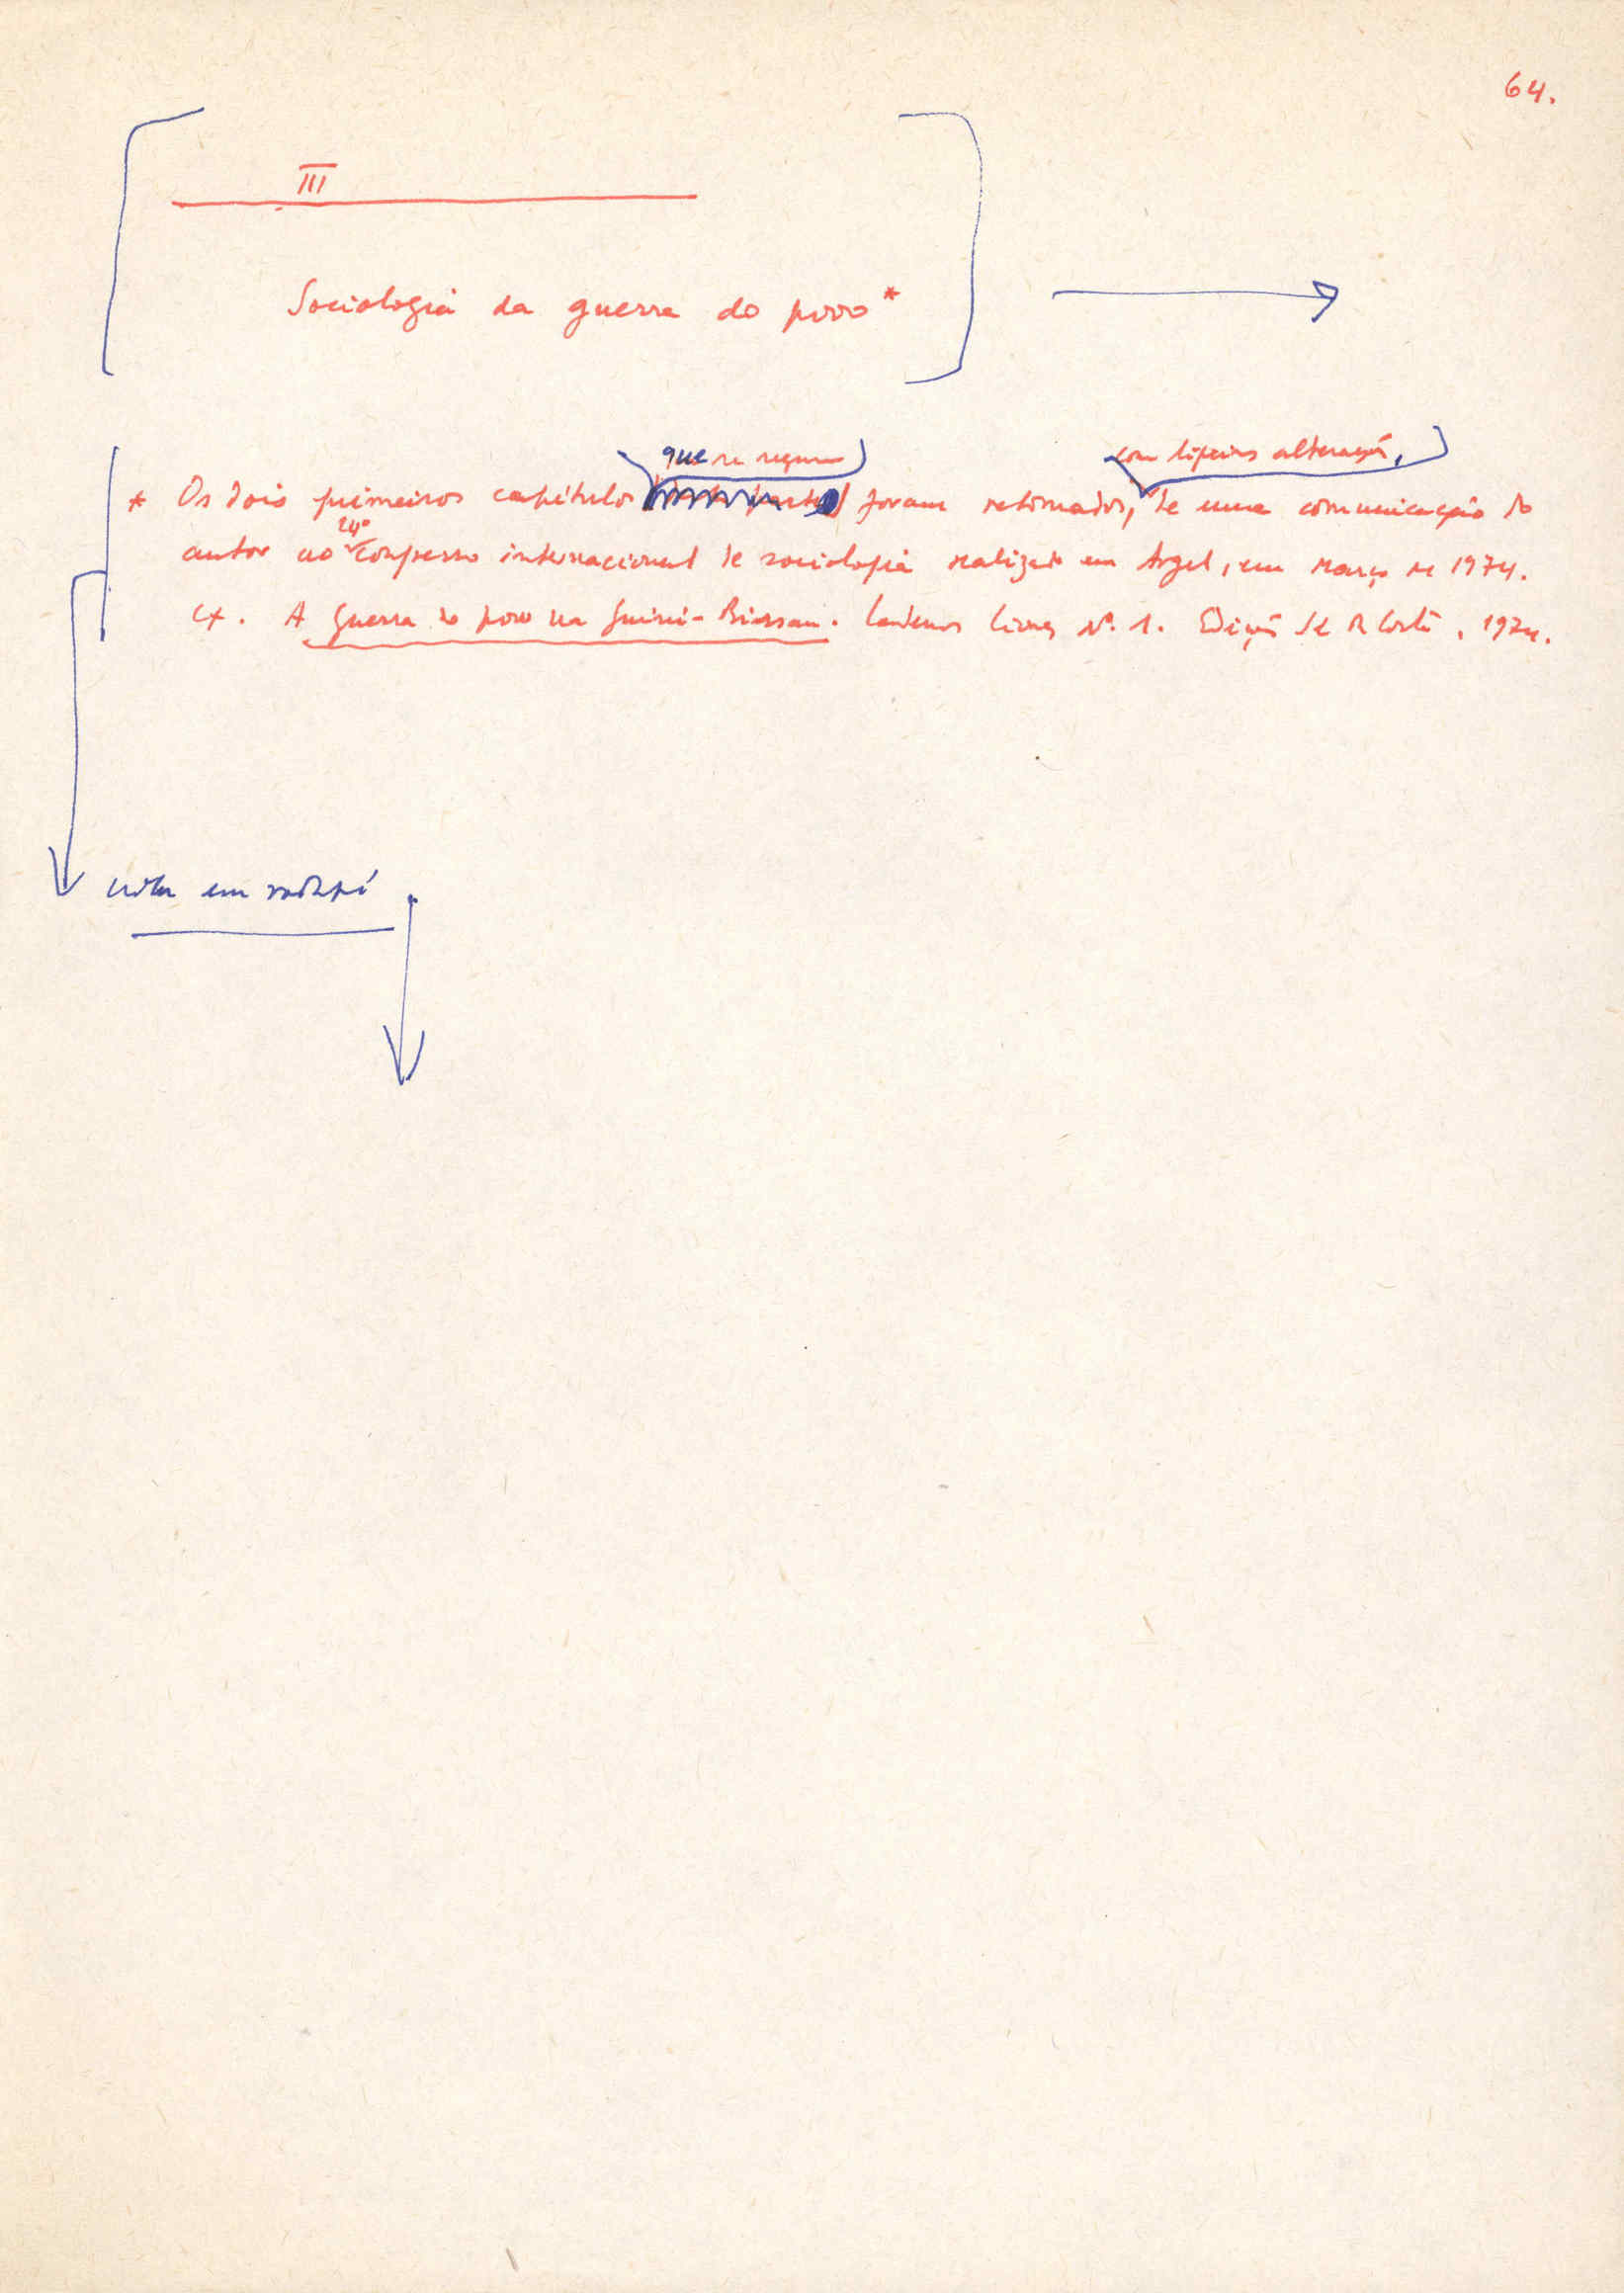 64.
III
Sociologia da guerra do povo *
que se seguem
com ligeiras alterações,
* Os dois primeiros capítulos foram retomados, de uma comunicação do
24º
autor ao Congresso internacional de sociologia realizado em Argel, em Março de 1974.
Cf. A guerra do povo na Guiné-Bissau. Cadernos Livres Nº. 1. Edição Sá da Costa, 1974.
nota em rodapé